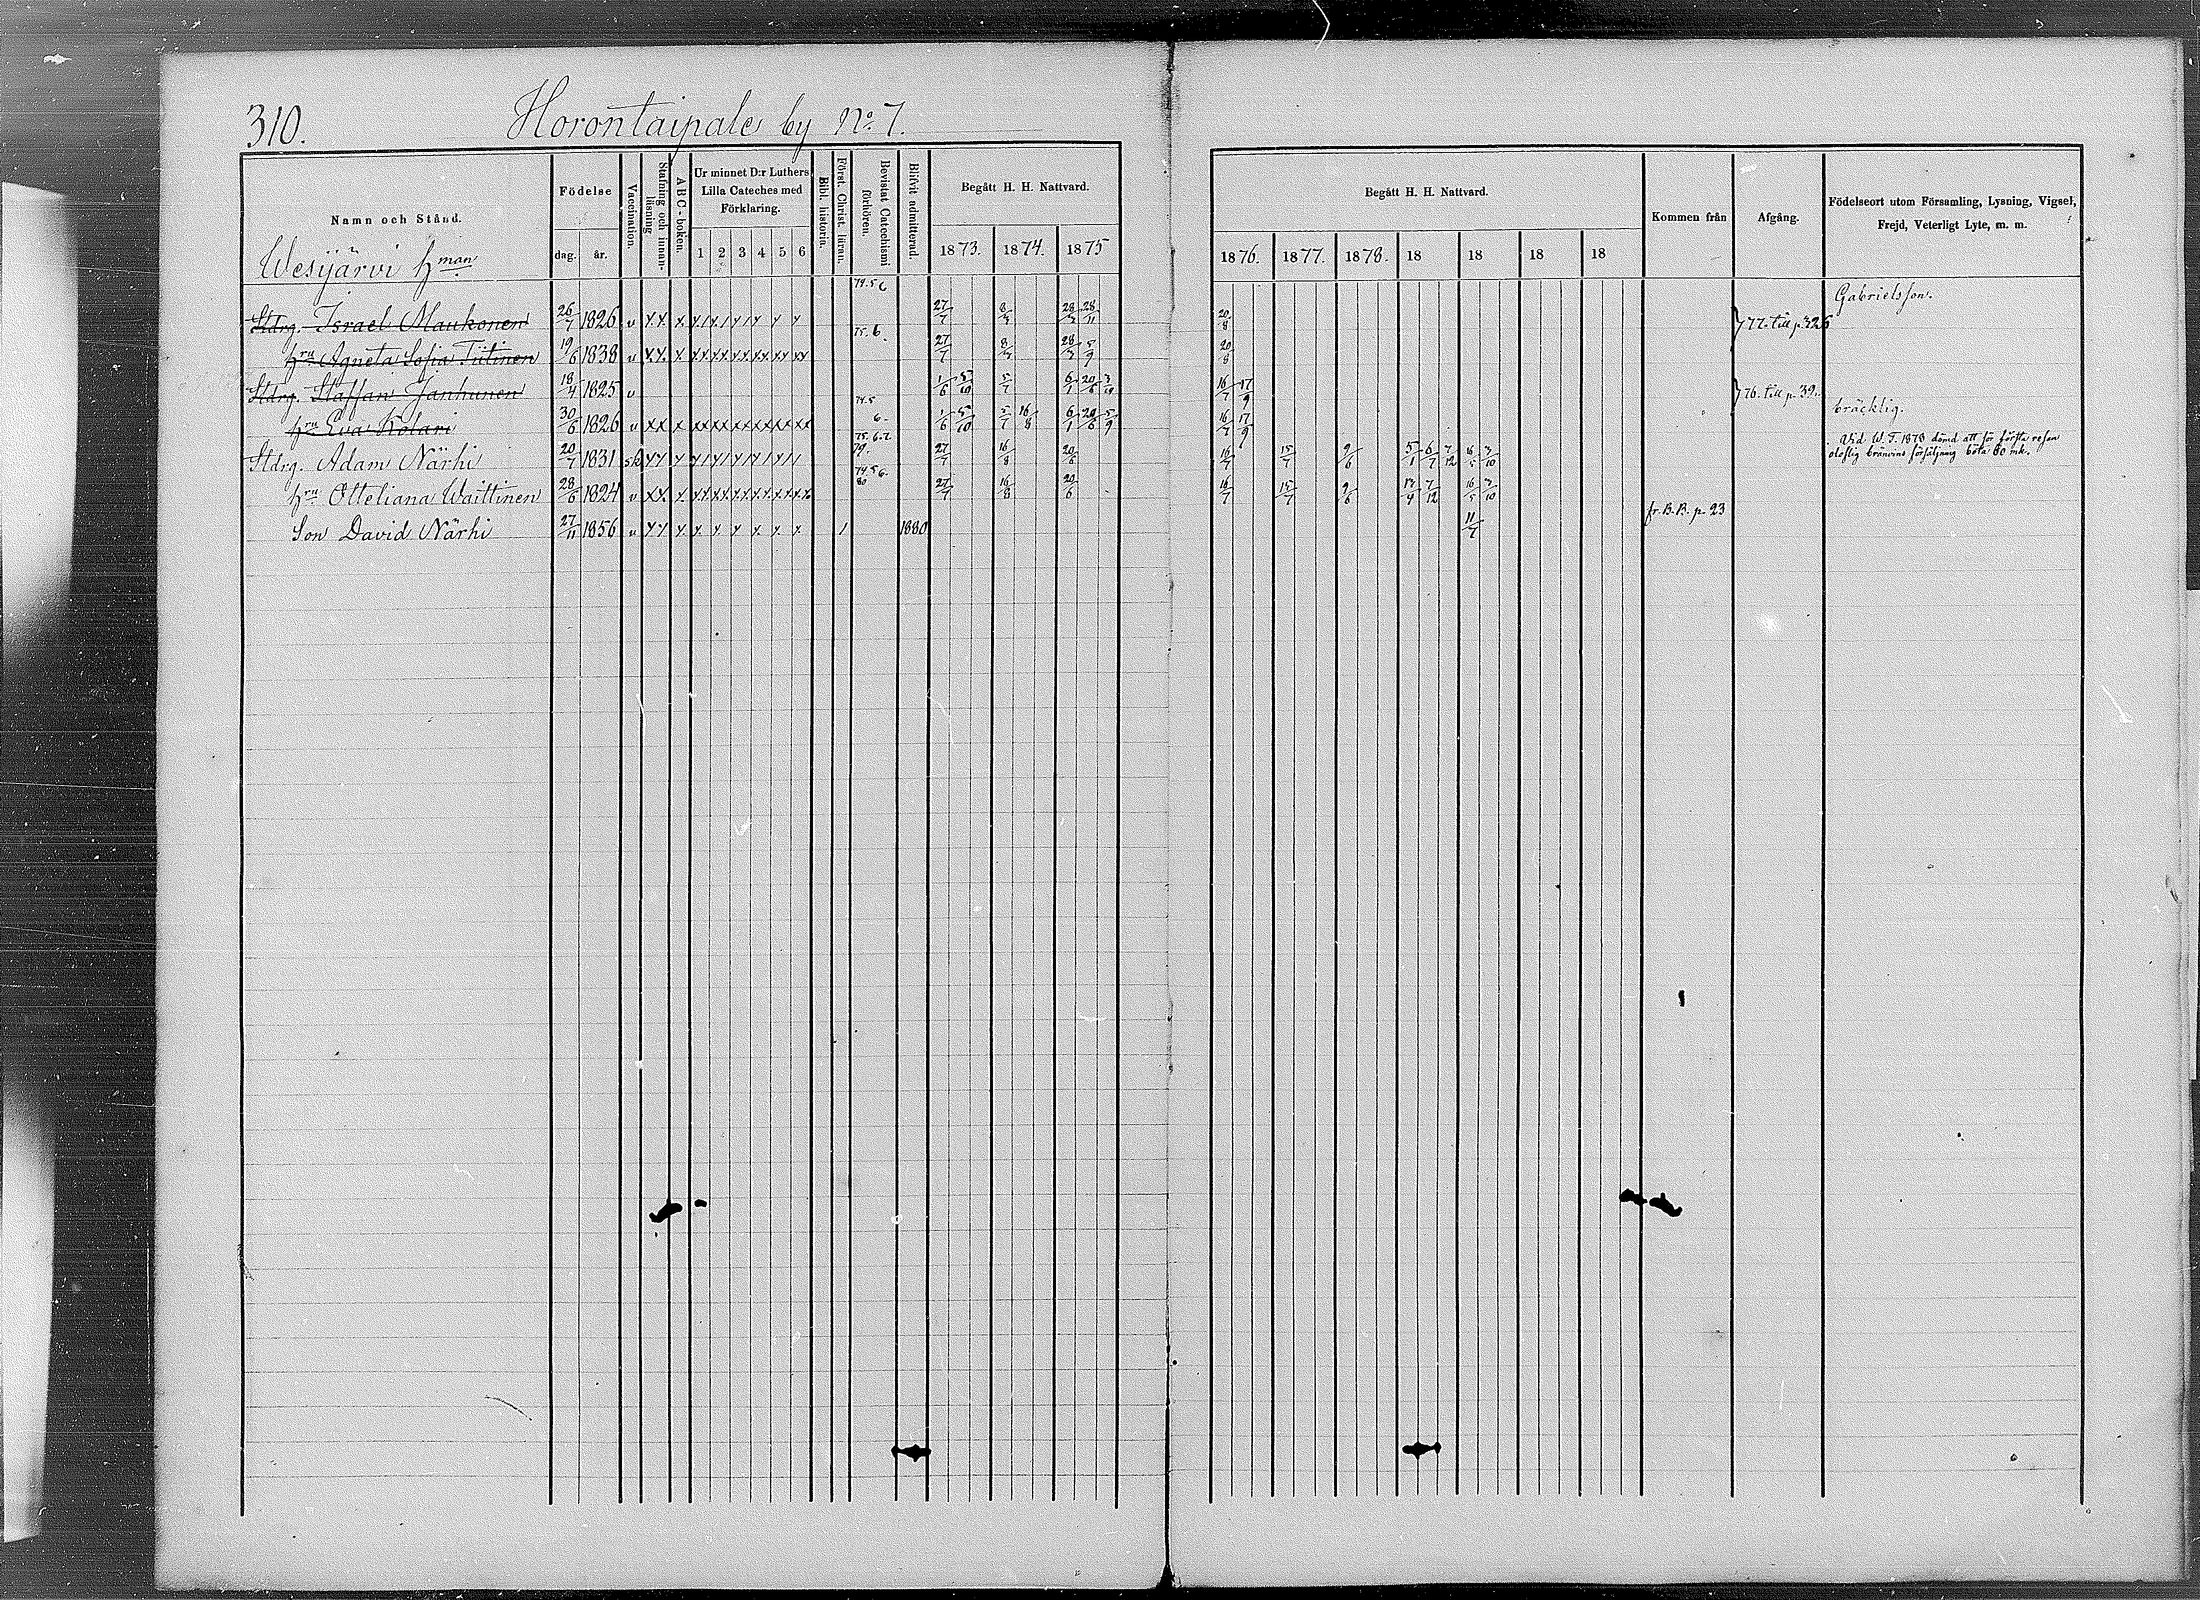 310. Horontaipale by No 7.
Namn och Stånd.
Födelse
dag. år.
Vaccination.
Stafning och innan-läsning
A B C - boken.
Ur minnet D:r Luthers Lilla Cateches med Förklaring.
1 2 3 4 5 6
Bibl. historia.
Först. Christ. läran.
Bevistat Catechismi förhören.
Blifvit admitterad.
Begått H. H. Nattvard.
1873. 1874. 1875
Begått H. H. Nattvard.
1876. 1877. 1878. 18 18 18 18
Kommen från
Afgång.
Födelseort utom Församling, Lysning, Vigsel, Frejd, Veterligt Lyte, m. m.
Wesijärvi hman
Stdrg. Israel Maukonen 26/7 1826 v x x x 74. 5 6 27/7 8/3 28/3 28/11 20/8 77. till p. 326 Gabrielsson.
hru Agneta Sofia Tiitinen 19/6 1838 v x x x 75. 6 27/7 8/3 28/3 5/9 20/8
Stdrg. Staffan Janhunen 18/4 1825 v 1/6 5/10 5/7 6/1 20/6 16/7 17/9 76. till p. 39
hru Eva Kolari 30/6 1826 v xx x xx xx xx xx xx xx 74. 5 6 1/6 5/10 5/7 16/8 6/1 20/6 5/9 16/7 17/9 bräcklig.
Stdrg. Adam Närhi 20/7 1831 sk 75. 6. 7. 79. 27/7 16/8 20/6 16/7 15/7 9/6 5/1 6/7 7/12 16/5 3/10 Vid W. T. 1878 dömd att för första resan
olaflig bränvins försäljning böta 60 mk.
hru Otteliana Waittinen 28/6 1824 v xx x xx xx xx xx xx xx 74 5 6. 80 27/7 16/8 20/6 16/7 15/7 9/6 7/12 16/5 3/10
Son David Närhi 27/11 1856 v x x x x x x x x x 1 1880 11/7 fr. B. B. p. 23